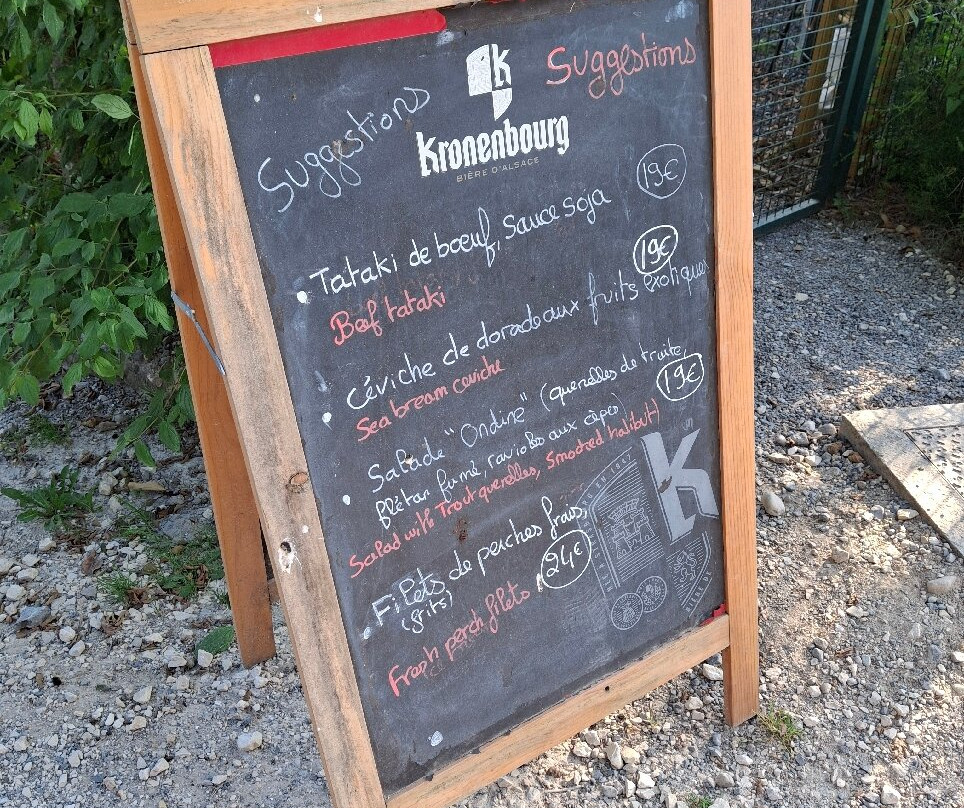 Suggestions
Suggestions
Kronenbourg
BIÈRE D'ALSACE
19€
Tataki de boeuf, Sauce soja
Beef tataki
19€
Céviche de dorade aux fruits exotiques
Sea bream ceviche
Salade "Ondine" (quenelles de truite,
19€
flétan fumé, ravioles aux cèpes)
Salad with Trout quenelles, Smocked halibut)
Filets de perches frais,
(frits)
24€
Fresh perch filets